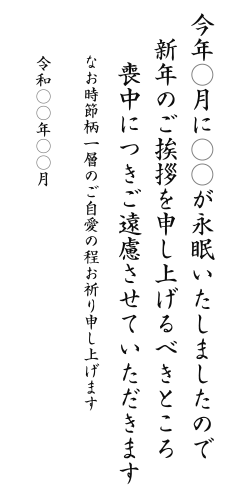 今年〇月に〇〇が永眠いたしましたので
新年のご挨拶を申し上げるべきところ
喪中につきご遠慮させていただきます
なお時節柄一層のご自愛の程お祈り申し上げます
令和〇〇年〇〇月